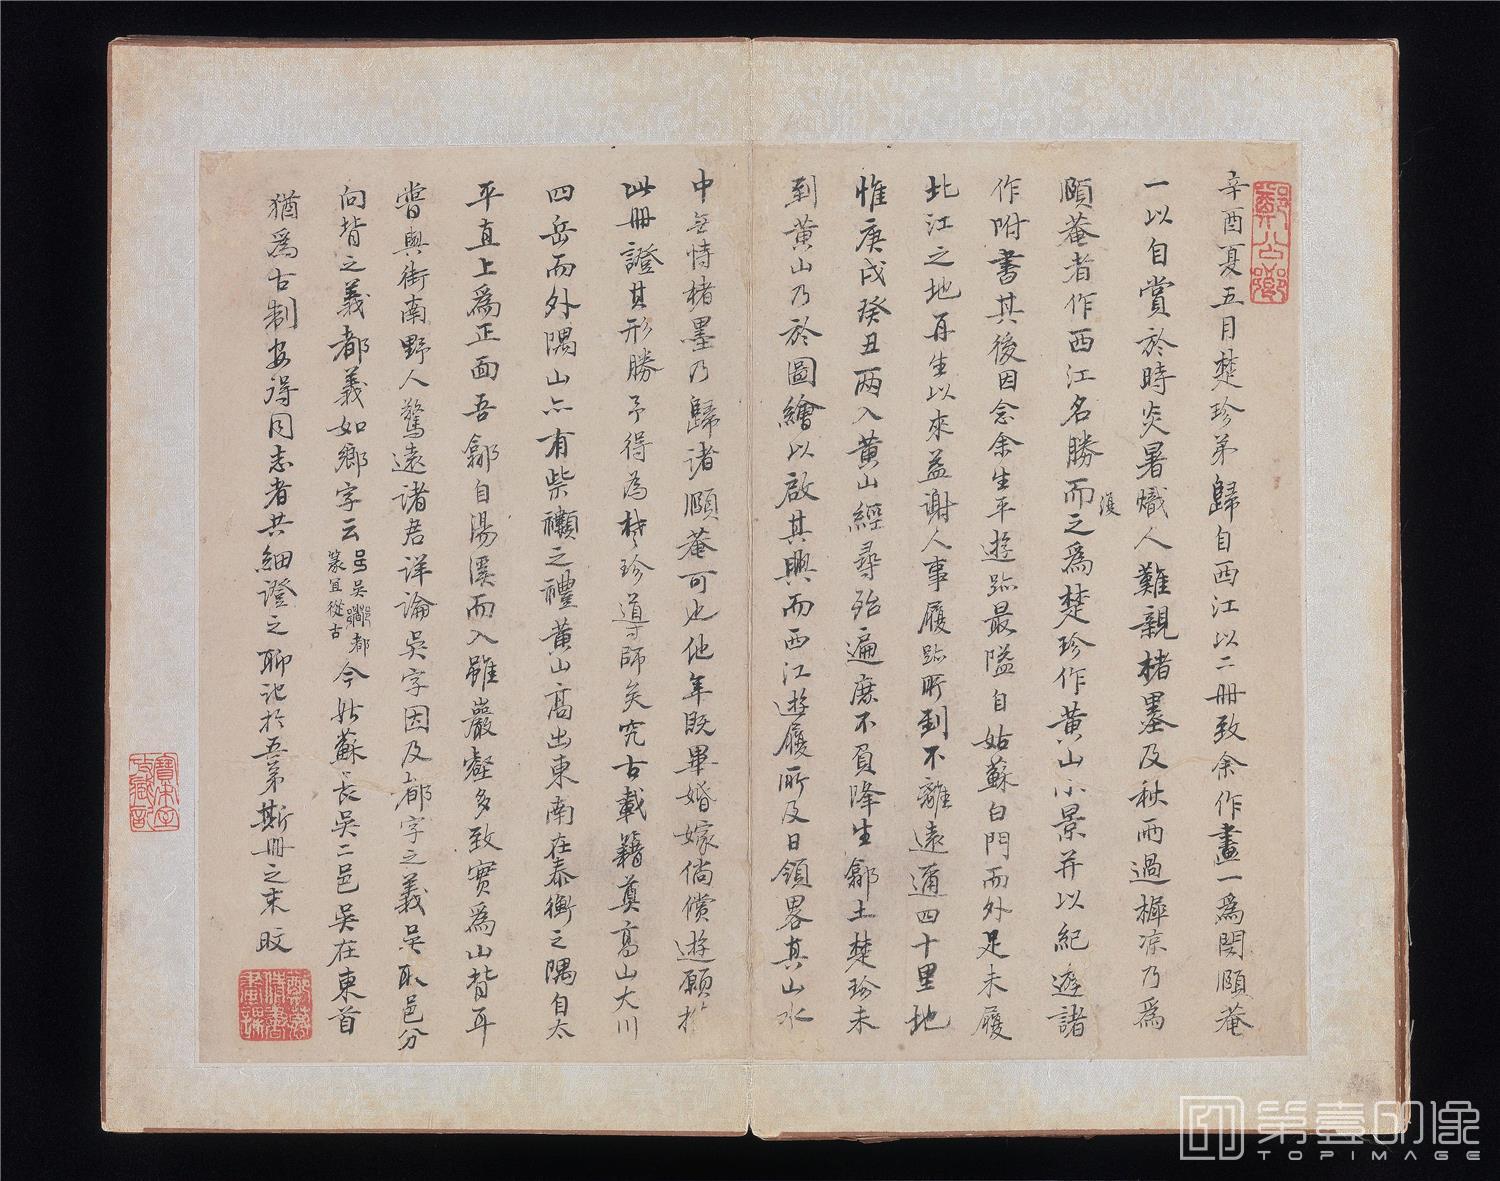 辛酉夏五月楚珍弟歸自西江以二冊致余作畫一為閔頤菴
一以自賞於時炎暑熾人難親楮墨及秋雨過極涼乃為
頤菴者作西江名勝而復之為楚珍作黃山小景并以紀遊諸
作附書其後因念余生平遊跡最隘自姑蘇白門而外足未履
北江之地再生以來益謝人事履跡所到不離遠邇四十里地
惟庚戌癸丑兩入黃山經尋殆遍庶不負降生鄉土楚珍未
到黃山乃於圖繪以啟其興而西江遊履所及日領畧其山水
中無恃楮墨乃歸諸頤菴可也他年既畢婚嫁倘償遊願於
此冊證其形勝予得為楚珍導師矣究古載籍奠高山大川
四岳而外隅山亦有柴之禮黃山高出東南在泰衡之隅自太
平直上為正面吾鄉自湯溪而入雖巖壑多致實為山背耳
嘗與街南野人驚遠諸君詳論吳字因及都字之義吳取邑分
向背之義都義如鄉字云吳都篆宜從古今姑蘇長吳二邑吳在東首
猶為古制安得同志者共細證之聊記於五第斯冊之末旼
鄭公鄉
TOPIMAGE
第壹印像